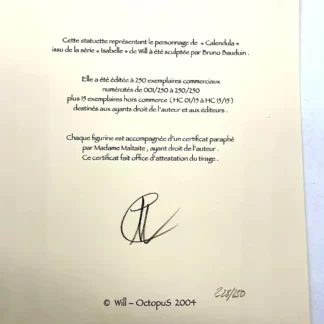 Cette statuette représentant le personnage de « Calendula »
issu de la série « Isabelle » de Will à été sculptée par Bruno Bauduin .
Elle a été éditée à 250 exemplaires commerciaux
numérotés de 001/250 à 250/250
plus 15 exemplaires hors commerce ( HC 01/15 à HC 15/15 )
destinés aux ayants droit de l'auteur et aux éditeurs .
Chaque figurine est accompagnée d'un certificat paraphé
par Madame Maltaite , ayant droit de l'auteur .
Ce certificat fait office d'attestation du tirage .
© Will – OctopuS 2004